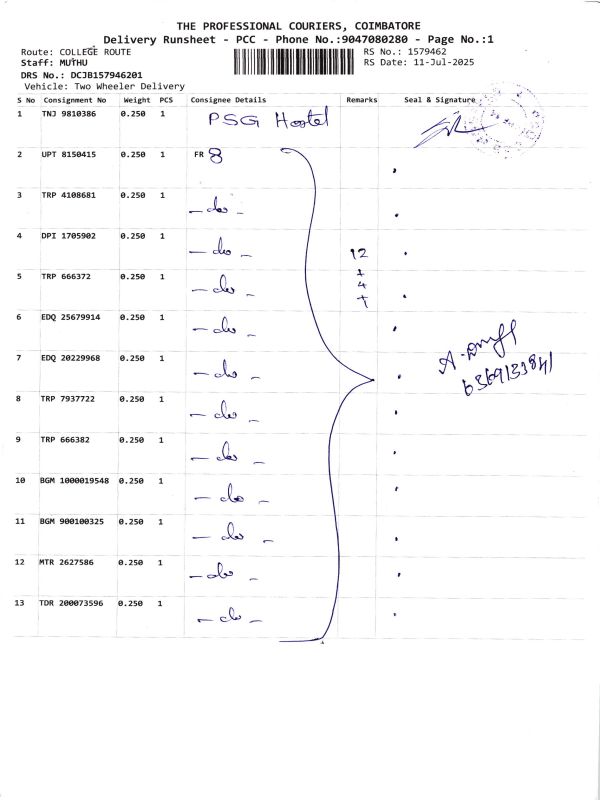 THE PROFESSIONAL COURIERS, COIMBATORE
Delivery Runsheet - PCC - Phone No.:9047080280 - Page No.:1
Route: COLLEGE ROUTE RS No.: 1579462
Staff: MUTHU RS Date: 11-Jul-2025
DRS No.: DCJB157946201
Vehicle: Two Wheeler Delivery
S No Consignment No Weight PCS Consignee Details Remarks Seal & Signature
1 TNJ 9810386 0.250 1 PSG Hostel
2 UPT 8150415 0.250 1 FR 8
3 TRP 4108681 0.250 1 - do -
4 DPI 1705902 0.250 1 - do - 12
5 TRP 666372 0.250 1 - do - + 4 +
6 EDQ 25679914 0.250 1 - do -
7 EDQ 20229968 0.250 1 - do - 6369133841
8 TRP 7937722 0.250 1 - do -
9 TRP 666382 0.250 1 - do -
10 BGM 1000019548 0.250 1 - do -
11 BGM 900100325 0.250 1 - do -
12 MTR 2627586 0.250 1 - do -
13 TDR 200073596 0.250 1 - do -